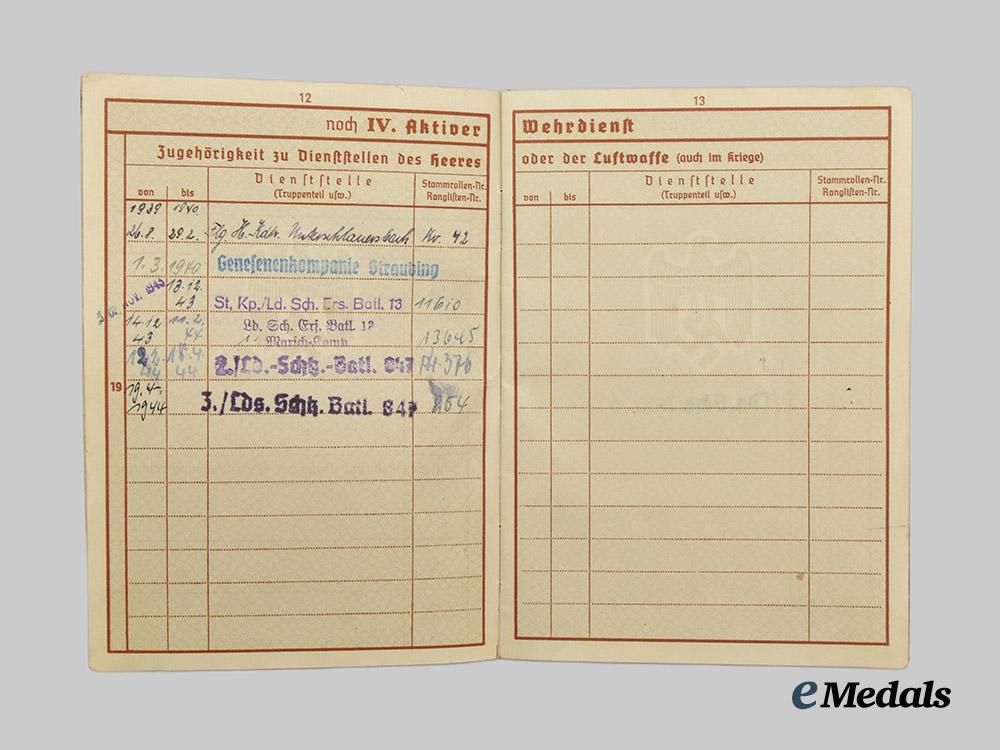 12
noch IV. Aktiver
Zugehörigkeit zu Dienststellen des Heeres
von
bis
Dienststelle
(Truppenteil usw.)
Stammrollen-Nr.
Ranglisten-Nr.
1939 1940
26.8. 29.2. Flg. H. Kdtr. Unterschlauersbach Nr. 42
1.3. 1940 Genesenenkompanie Straubing
13.12.
43 St. Kp./Ld. Sch. Ers. Batl. 13 11610
14.12 11.2. Ld. Sch. Ers. Batl. 13
43 44 Marsch-Komp 13645
12.2. 18.4. 2./Ld.-Schtz.-Batl. 847 376
44 44
19 19.4. 3./Lds. Schtz. Batl. 847 854
1944
13
Wehrdienst
oder der Luftwaffe (auch im Kriege)
von
bis
Dienststelle
(Truppenteil usw.)
Stammrollen-Nr.
Ranglisten-Nr.
eMedals